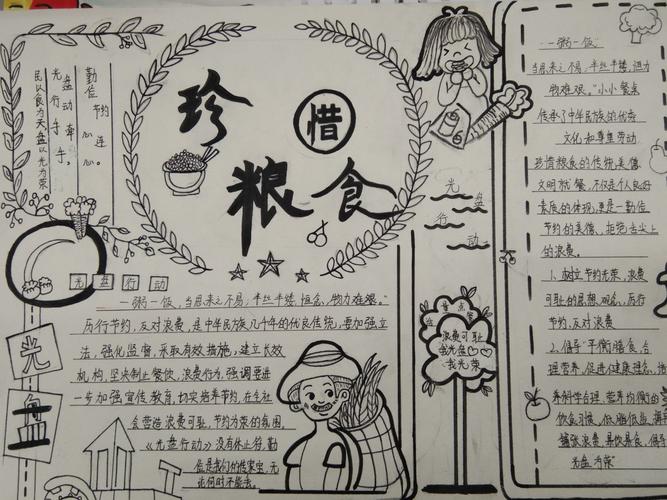 珍惜
粮食
勤俭节约心连心。
光盘行动牵手手,
民以食为天盘以光为荣
光盘行动
一粥一饭,当思来之不易,半丝半缕,恒念,物力难艰。"
历行节约,反对浪费,是中华民族几千年的优良传统,要加强立
法,强化监督,采取有效措施,建立长效
机构,坚决制止餐饮,浪费行为,强调要进
一步加强宣传教育,切实培养节约,在全社
会营造浪费可耻,节约为荣的氛围。
《光盘行动》没有休止符,勤
俭是我们的传家宝,无
论何时不能丢。
光
盘
光盘
行动
浪费可耻
我光盘
我光荣
一粥一饭,
当思来之不易,半丝半缕,恒力
物难艰。"小小餐桌
传承了中华民族的优秀
文化和尊重劳动
珍惜粮食的传统美德
文明就餐,不仅是个人良好
素质的体现,更是一勤俭
节约的美德,拒绝舌尖上
的浪费。
1.树立节约光荣,浪费
可耻的思想观念,厉行
节约,反对浪费
2.倡导"平衡膳食,合
理营养,促进健康理念,
养科学合理,营养均衡的
饮食习惯,低脂低盐,
铺张浪费,暴饮暴食,倡导
光盘为荣"